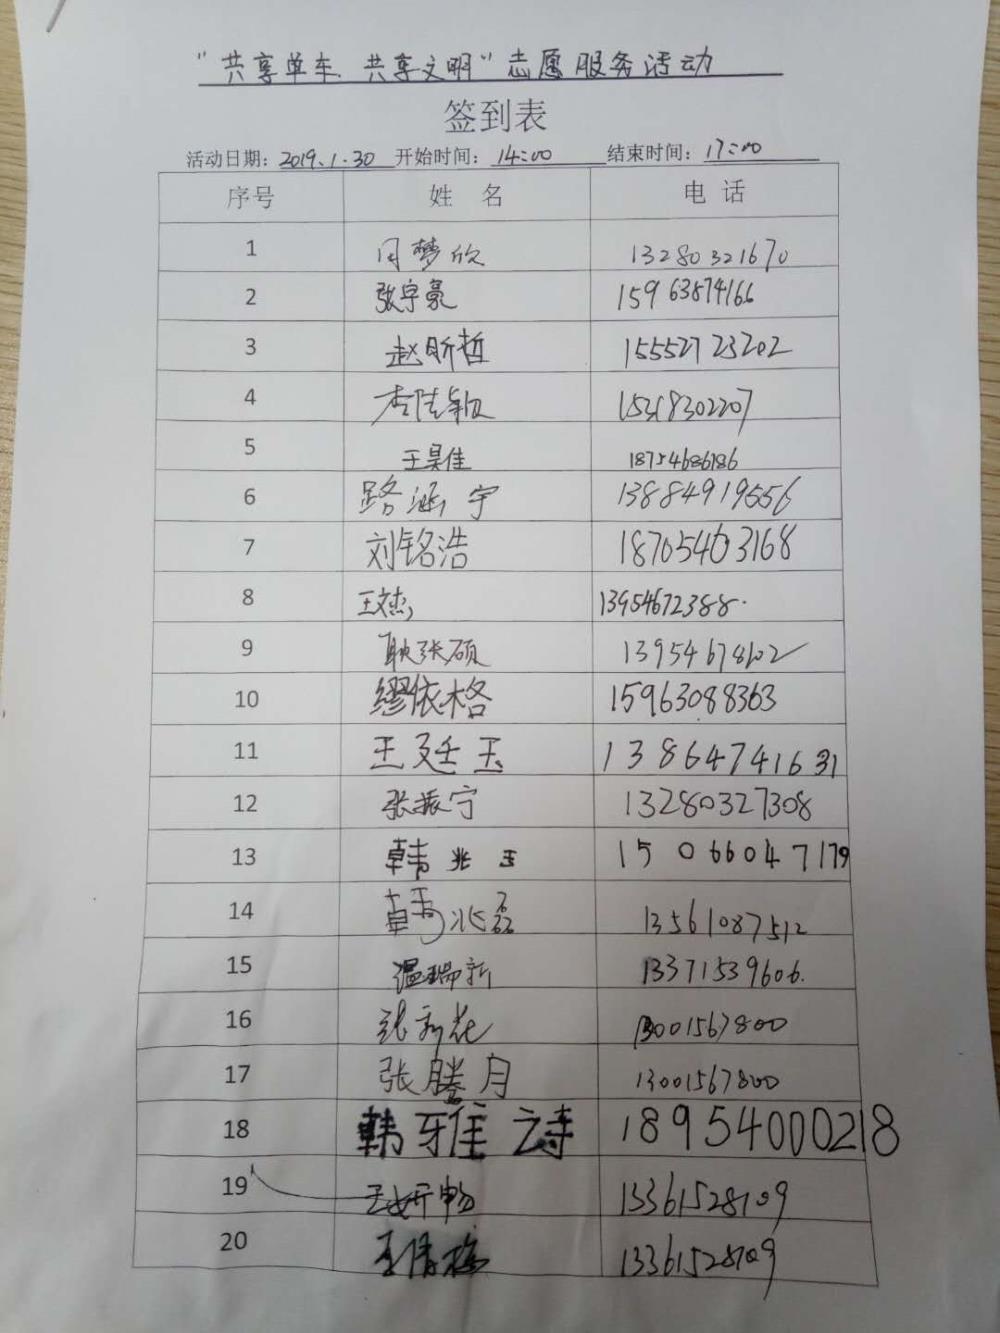 "共享单车、共享文明"志愿服务活动
签到表
活动日期：2019.1.30 开始时间：14:00 结束时间：17:00
序号 姓 名 电 话
1 闫梦欣 13280321670
2 张宇豪 15963874166
3 赵昕哲 15552723202
4 李佳颖 15318302207
5 王昊佳 18754686186
6 路涵宇 13884919556
7 刘铭浩 18705463168
8 王文杰 13954672388
9 耿张硕 13954678602
10 缪依格 15963088363
11 王廷玉 13864741631
12 张振宁 13280327308
13 韩兆玉 15066047179
14 韩兆磊 13561087512
15 温瑞新 13371539606.
16 张 花 13001567800
17 张腾月 13001567800
18 韩雅诗 18954000218
19 王妍畅 13361528109
20 王 梅 13361528109